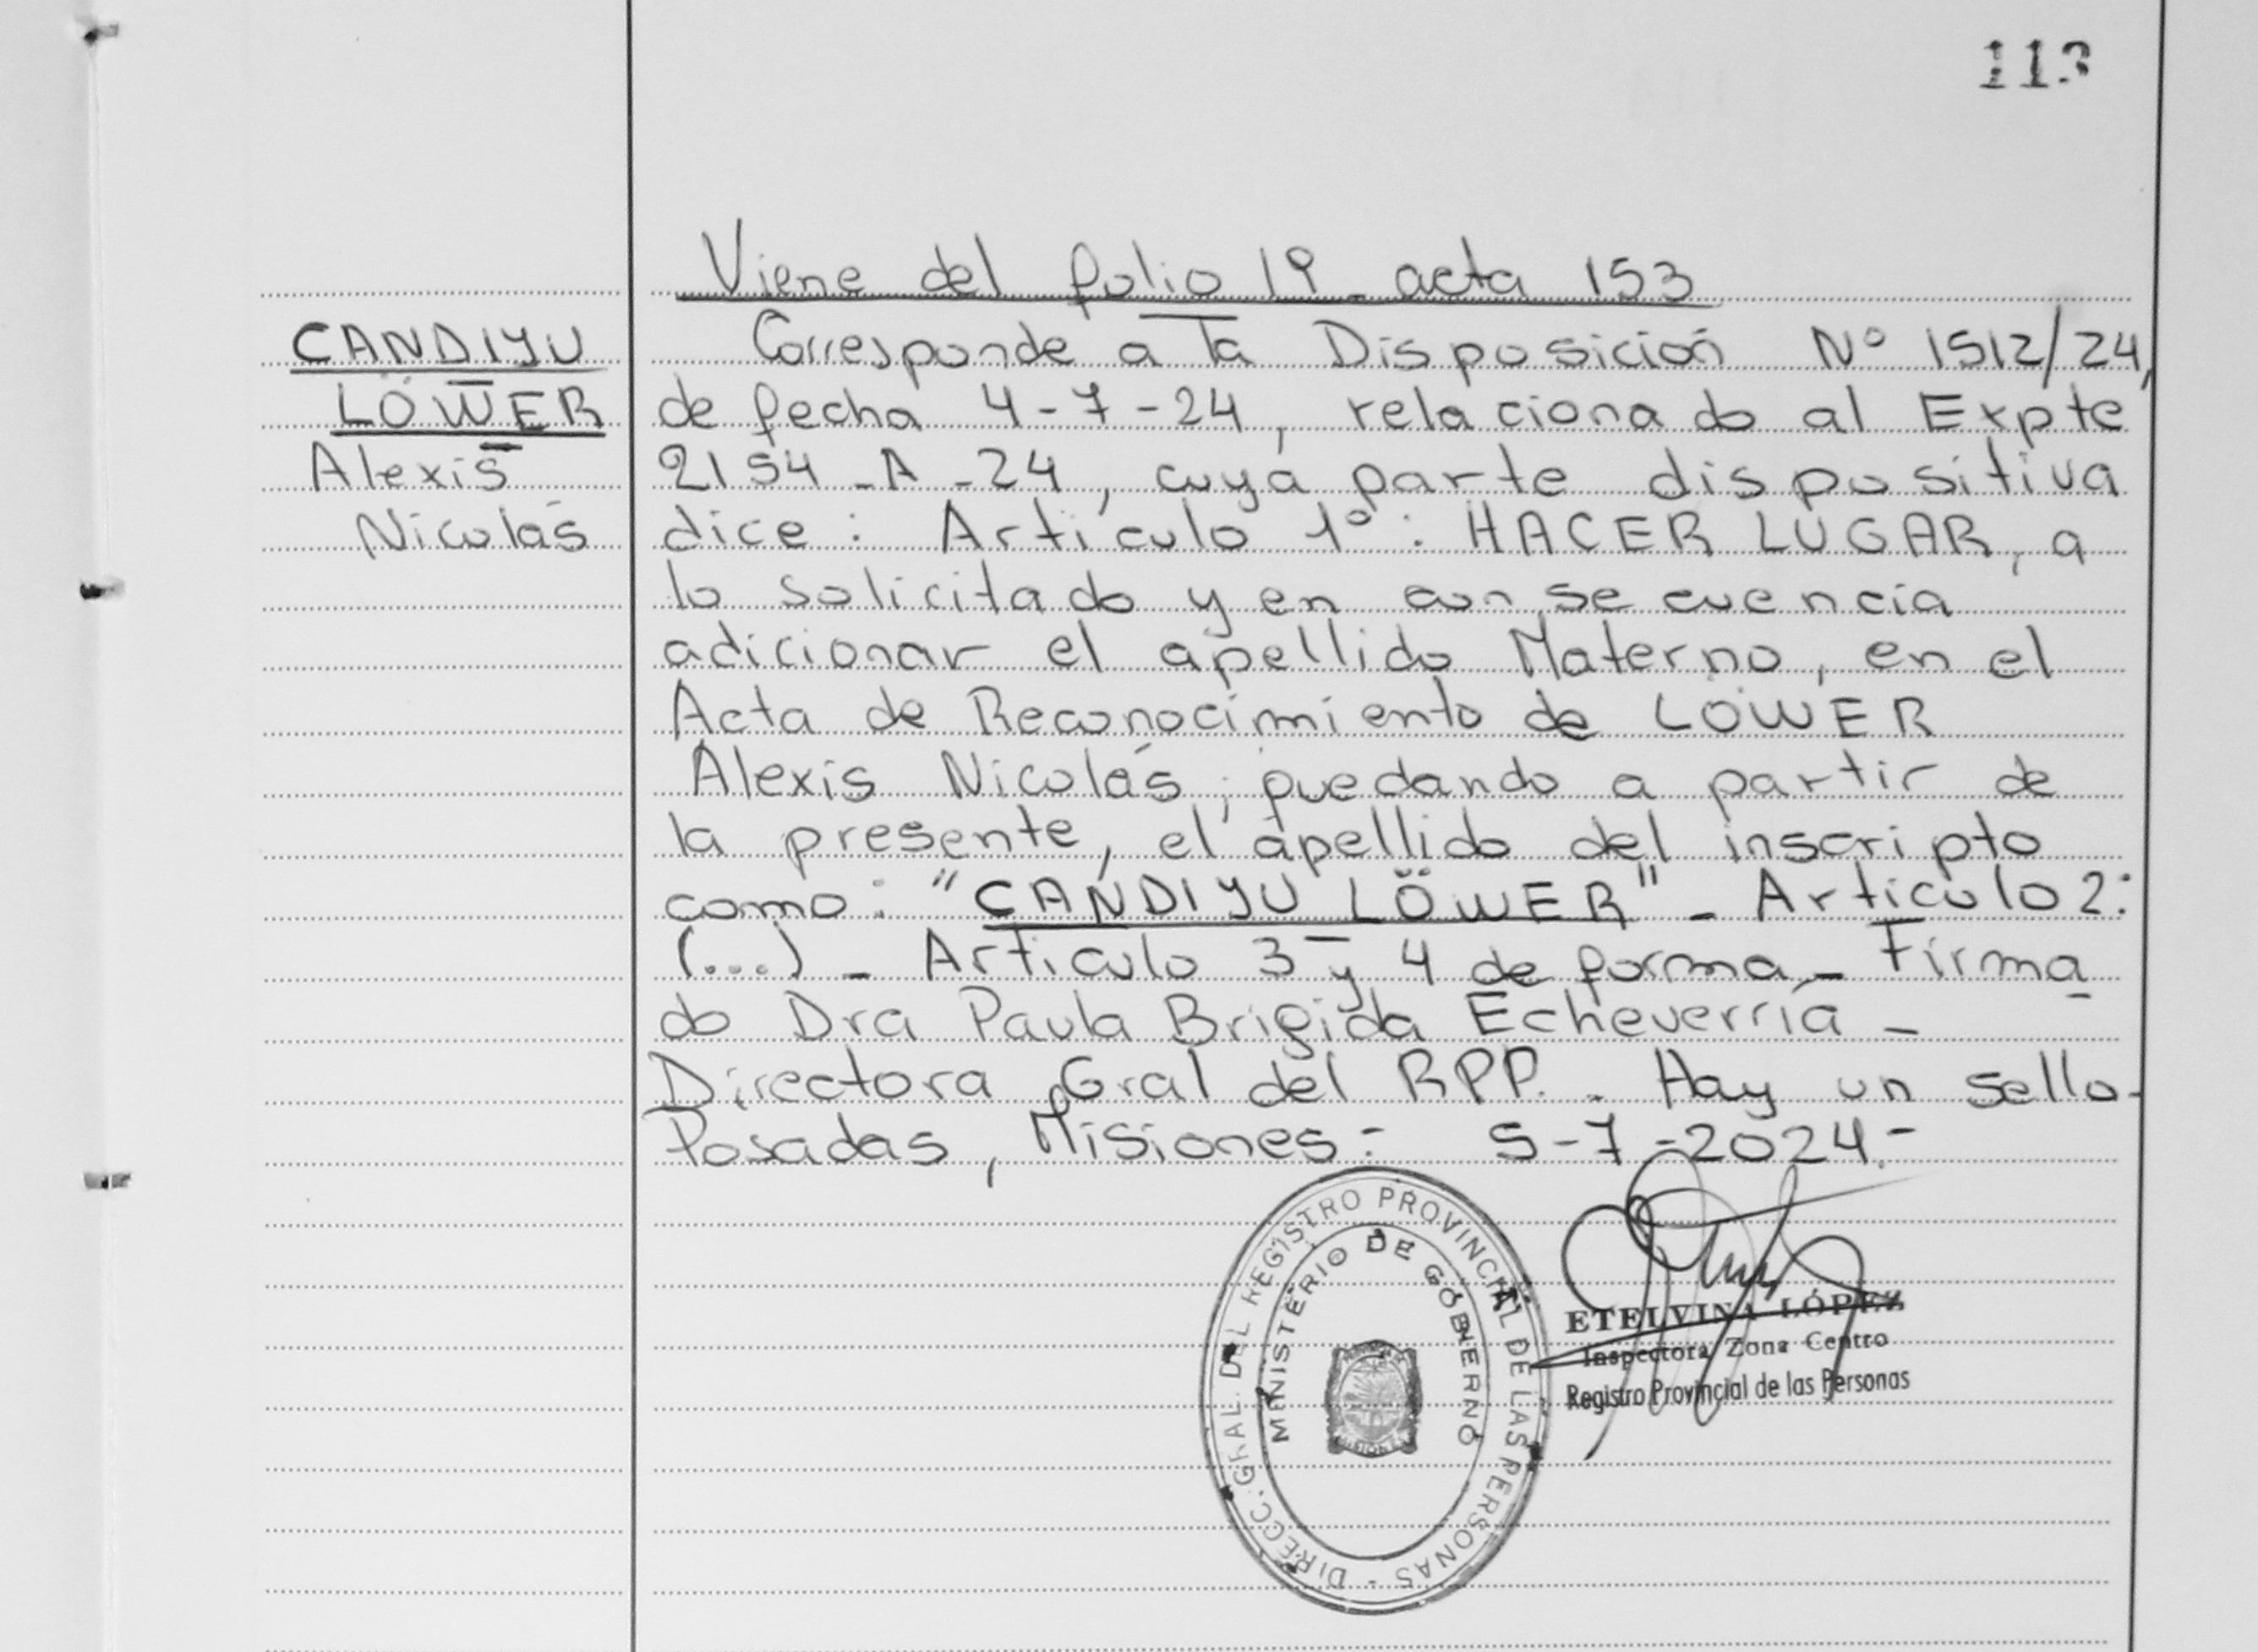 113
Viene del folio 19 - acta 153
CANDIYU
LÖWER
Alexis
Nicolás
Corresponde a la Disposición Nº 1512/24,
de fecha 4-7-24, relacionado al Expte
2154-A-24, cuya parte dispositiva
dice: Artículo 1º: HACER LUGAR, a
lo solicitado y en consecuencia
adicionar el apellido Materno, en el
Acta de Reconocimiento de LÖWER
Alexis Nicolás, quedando a partir de
la presente, el apellido del inscripto
como: "CANDIYU LÖWER" - Articulo 2:
(...) - Articulo 3 y 4 de forma - Firma
do Dra Paula Brigida Echeverría -
Directora Gral del RPP. - Hay un sello-
Posadas, Misiones - 5-7-2024.-
DIRECC. GRAL. DEL REGISTRO PROVINCIAL DE LAS PERSONAS -
MINISTERIO DE GOBIERNO
MISIONES
ETELVINA LÓPEZ
Inspectora Zona Centro
Registro Provincial de las Personas